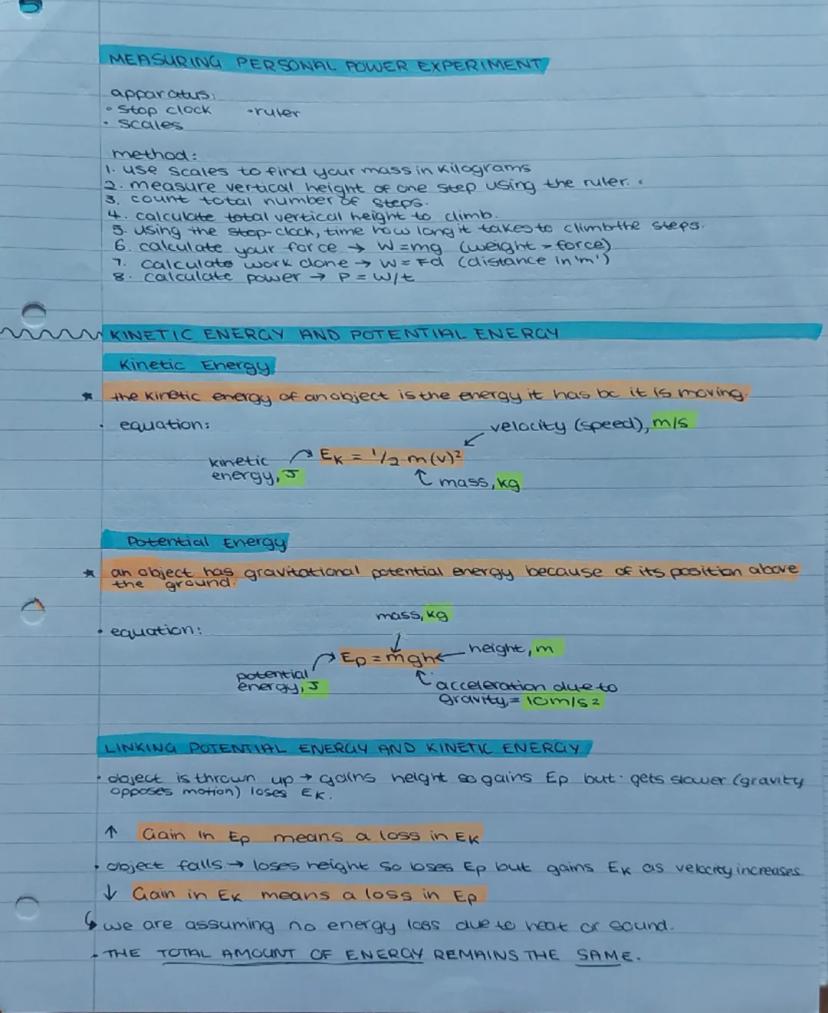 MEASURING PERSONAL POWER EXPERIMENT
apparatus:
• stop clock • ruler
• scales
method:
1. use scales to find your mass in kilograms
2. measure vertical height of one step using the ruler.
3. count total number of steps.
4. calculate total vertical height to climb.
5. using the stop-clock, time how long it takes to climb the steps.
6. calculate your force → W = mg (weight = force)
7. calculate work done → W = Fd (distance in 'm')
8. calculate power → P = W/t
KINETIC ENERGY AND POTENTIAL ENERGY
Kinetic Energy
* the kinetic energy of an object is the energy it has bc it is moving.
• equation:
velocity (speed), m/s
Ek = 1/2 m(v)²
kinetic
energy, J
mass, kg
Potential Energy
* an object has gravitational potential energy because of its position above
the ground.
mass, kg
• equation:
height, m
Ep = mgh
potential
energy, J
acceleration due to
gravity = 10m/s²
LINKING POTENTIAL ENERGY AND KINETIC ENERGY
• object is thrown up → gains height so gains Ep but gets slower (gravity
opposes motion) loses Ek.
↑ Gain in Ep means a loss in Ek
• object falls → loses height so loses Ep but gains Ek as velocity increases
↓ Gain in Ek means a loss in Ep
↳ we are assuming no energy loss due to heat or sound.
• THE TOTAL AMOUNT OF ENERGY REMAINS THE SAME.